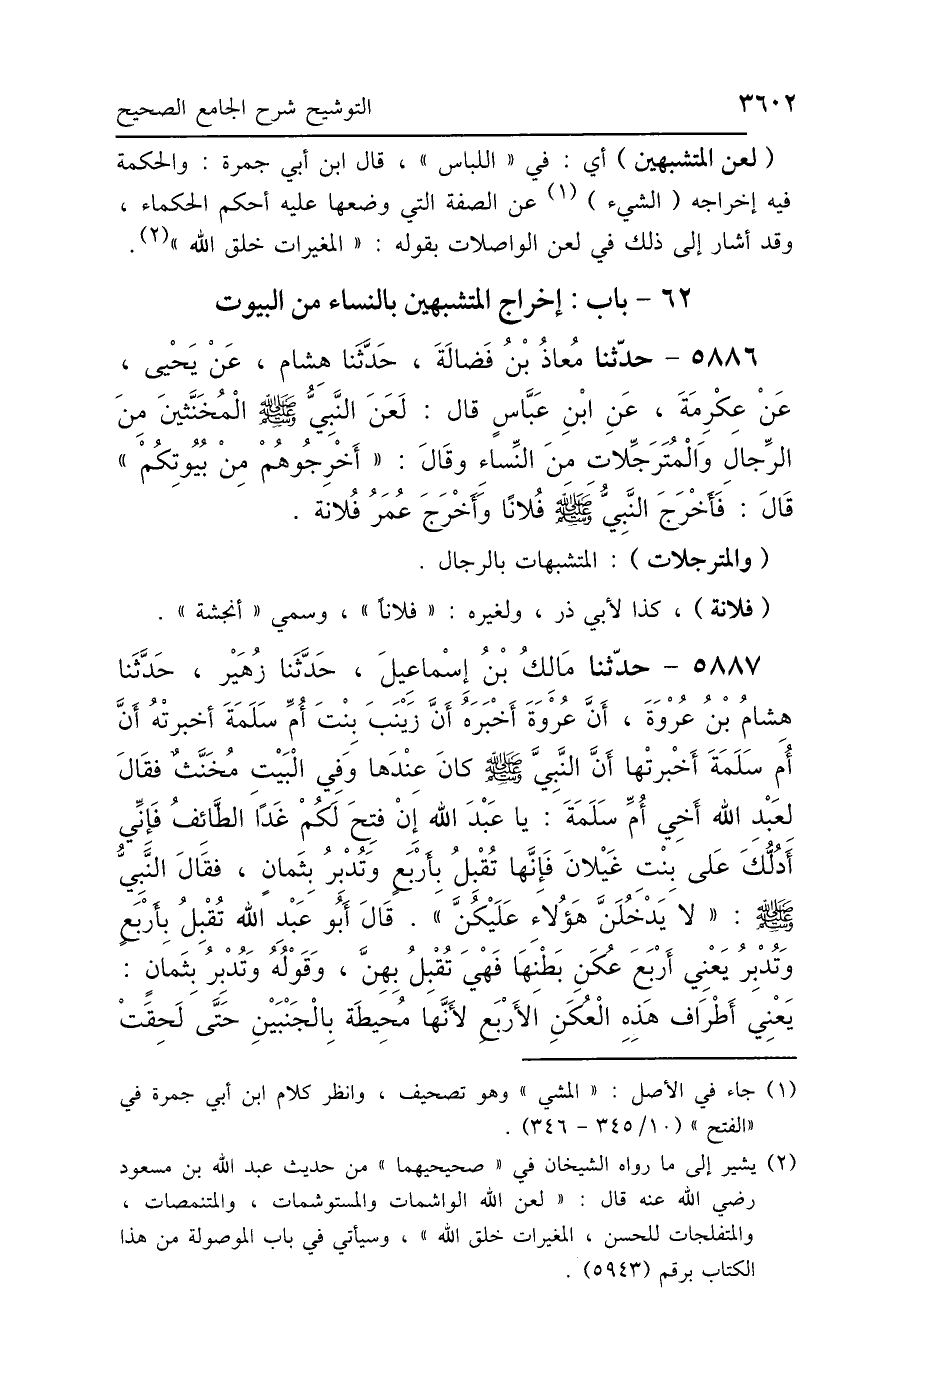 ٣٦٠٢ التوشيح شرح الجامع الصحيح
( لعن المتشبهين ) أي : في « اللباس » ، قال ابن أبي جمرة : والحكمة
فيه إخراجه ( الشيء ) (١) عن الصفة التي وضعها عليه أحكم الحكماء ،
وقد أشار إلى ذلك في لعن الواصلات بقوله : « المغيرات خلق الله »(٢).
٦٢ - باب : إخراج المتشبهين بالنساء من البيوت
٥٨٨٦ - حدّثنا مُعاذُ بْنُ فَضالَةَ ، حَدَّثَنا هِشام ، عَنْ يَحْيى ،
عَنْ عِكْرِمَةَ ، عَنِ ابْنِ عَبَّاسٍ قال : لَعَنَ النَّبِيُّ ﷺ الْمُخَنَّثينَ مِنَ
الرِّجالِ والْمُتَرَجِّلاتِ مِنَ النِّساءِ وقَالَ : « أَخْرِجُوهُم مِنْ بُيُوتِكُمْ »
قَالَ : فَأَخْرَجَ النَّبِيُّ ﷺ فُلانًا وأَخْرَجَ عُمَرُ فُلانة .
( والمترجلات ) : المتشبهات بالرجال .
( فلانة ) ، كذا لأبي ذر ، ولغيره : « فلاناً » ، وسمي « أنجشة » .
٥٨٨٧ - حدّثنا مَالكُ بْنُ إسْماعيلَ ، حَدَّثَنا زُهَيْر ، حَدَّثَنا
هِشامُ بْنُ عُرْوَةَ ، أَنَّ عُرْوَةَ أَخْبَرَهُ أَنَّ زَيْنَبَ بِنْتَ أُمِّ سَلَمَةَ أخبرتْهُ أَنَّ
أُم سَلَمَةَ أَخْبرتْها أَنَّ النَّبِيَّ ﷺ كانَ عِنْدَها وَفِي الْبَيْتِ مُخَنَّثٌ فقَالَ
لعَبْدِ الله أَخِي أُمِّ سَلَمَةَ : يا عَبْدَ الله إِنْ فتِحَ لَكُمْ غَدًا الطَّائفُ فَإِنِّي
أَدُلُّكَ عَلى بِنْتِ غَيْلانَ فَإنَّها تُقْبِلُ بأَرْبَعٍ وَتُدْبِرُ بثَمانٍ ، فقَالَ النَّبِيُّ
ﷺ : « لا يَدْخُلَنَّ هَؤُلاءِ عَلَيْكُنَّ » . قَالَ أَبُو عَبْدِ الله تُقْبِلُ بأَرْبَعٍ
وَتُدْبِرُ يَعْنِي أَرْبَعَ عُكَنِ بَطْنِهَا فَهْيَ تُقْبِلُ بِهِنَّ ، وَقَوْلُهُ وَتُدْبِرُ بثَمانٍ :
يَعْنِي أَطْرَاف هَذِهِ الْعُكَنِ الأَرْبَعِ لأَنَّها مُحِيطَة بِالْجَنْبَيْنِ حَتَّى لَحِقَتْ
(١) جاء في الأصل : « المشي » وهو تصحيف ، وانظر كلام ابن أبي جمرة في
«الفتح » (١٠/ ٣٤٥ - ٣٤٦) .
(٢) يشير إلى ما رواه الشيخان في « صحيحيهما » من حديث عبد الله بن مسعود
رضي الله عنه قال : « لعن الله الواشمات والمستوشمات ، والمتنمصات ،
والمتفلجات للحسن ، المغيرات خلق الله » ، وسيأتي في باب الموصولة من هذا
الكتاب برقم (٥٩٤٣) .